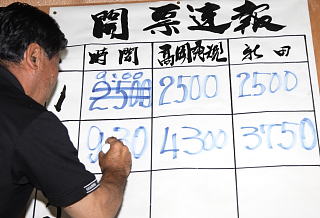 開票速報
時間 高岡秀規 永田
9:00 2500 2500 2500
9:30 4300 3750